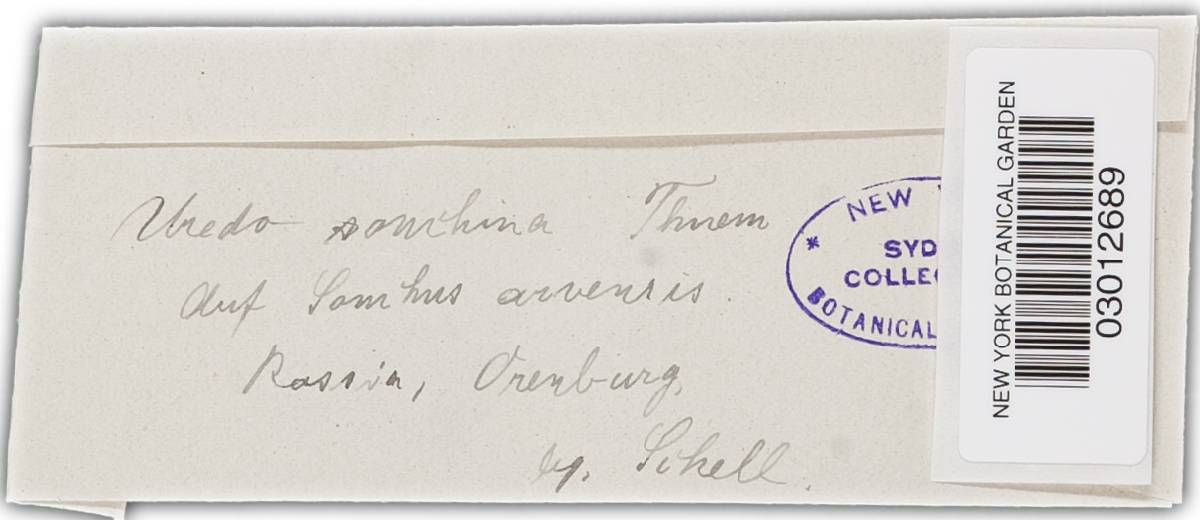 Uredo sonchina Thuem
auf Sonchus arvensis.
Rossia, Orenburg,
lg. Schell.
NEW
SYD
COLLE
BOTANICAL
NEW YORK BOTANICAL GARDEN
03012689